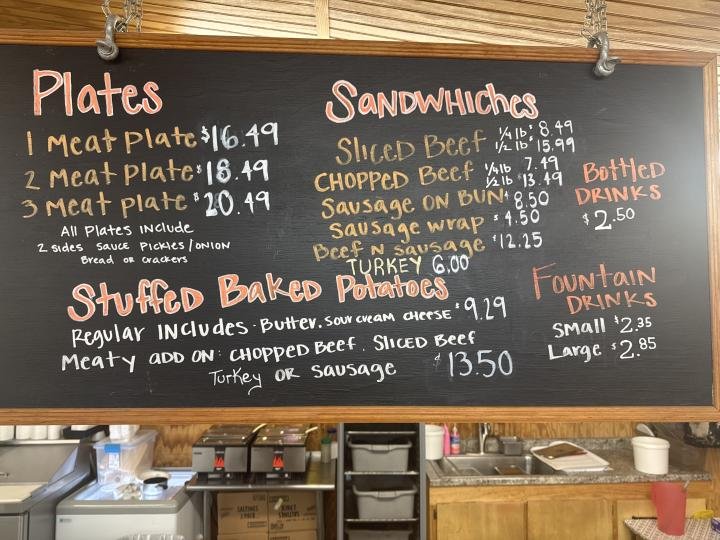 Plates
1 Meat Plate $16.49
2 Meat Plate $18.49
3 Meat Plate $20.49
All Plates Include
2 sides sauce Pickles/onion
Bread or crackers
Sandwhiches
Sliced Beef 1/4 lb $8.49
1/2 lb $15.99
Chopped Beef 1/4 lb 7.49
1/2 lb $13.49
Sausage on Bun $8.50
Sausage wrap $4.50
Beef n sausage $12.25
Turkey 6.00
Bottled
Drinks
$2.50
Stuffed Baked Potatoes
Regular Includes: Butter, sour cream cheese $9.29
Meaty add on: Chopped Beef, Sliced Beef
Turkey or sausage $13.50
Fountain
Drinks
Small $2.35
Large $2.85